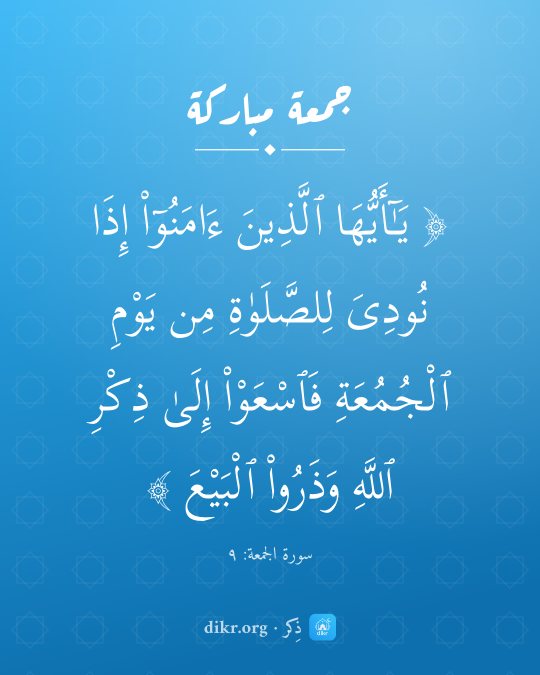 جمعة مباركة
﴿ يَـٰٓأَيُّهَا ٱلَّذِينَ ءَامَنُوٓا۟ إِذَا
نُودِىَ لِلصَّلَوٰةِ مِن يَوْمِ
ٱلْجُمُعَةِ فَٱسْعَوْا۟ إِلَىٰ ذِكْرِ
ٱللَّهِ وَذَرُوا۟ ٱلْبَيْعَ ﴾
سورة الجمعة: ٩
ذِكر · dikr.org
dikr